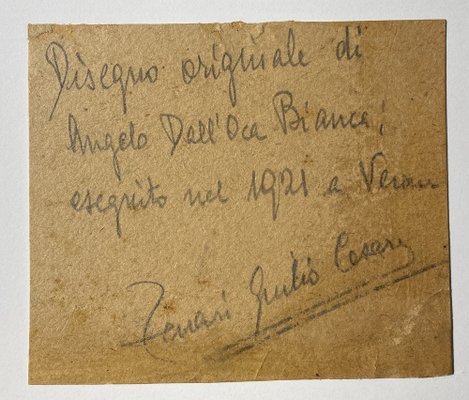 Disegno originale di
Angelo Dall'Oca Bianca;
eseguito nel 1921 a Verona
Zenari Giulio Cesare